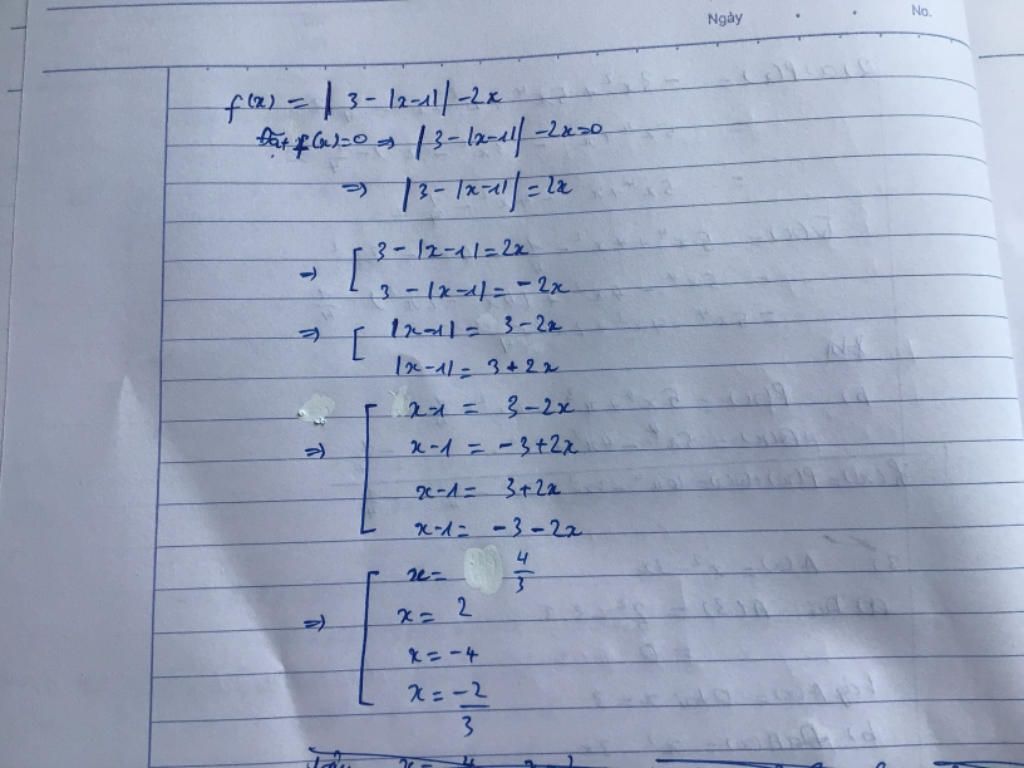 Ngày
No.
f(x) = |3 - |x-1|| - 2x
Đặt f(x)=0 => |3 - |x-1|| - 2x=0
=> |3 - |x-1|| = 2x
=> [ 3 - |x-1| = 2x
3 - |x-1| = -2x
=> [ |x-1| = 3-2x
|x-1| = 3+2x
=> [ x-1 = 3-2x
x-1 = -3+2x
x-1 = 3+2x
x-1 = -3-2x
=> [ x = 4/3
x = 2
x = -4
x = -2/3